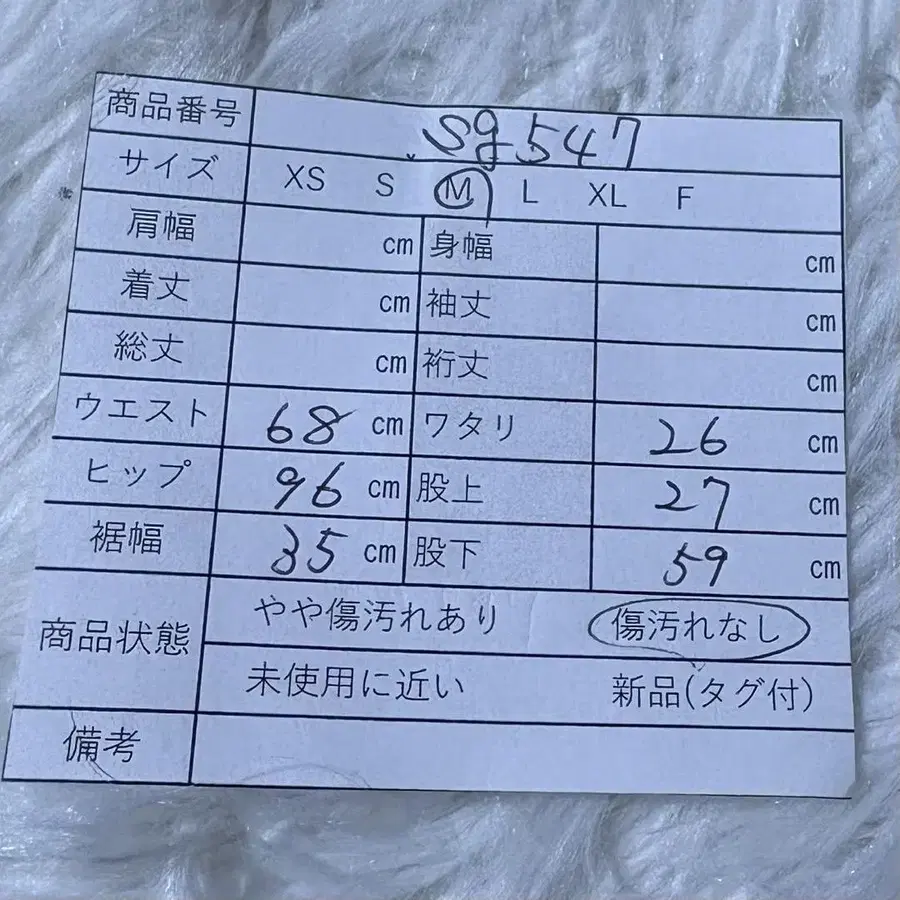 商品番号 sg547
サイズ XS S M L XL F
肩幅 cm 身幅 cm
着丈 cm 袖丈 cm
総丈 cm 裄丈 cm
ウエスト 68 cm ワタリ 26 cm
ヒップ 96 cm 股上 27 cm
裾幅 35 cm 股下 59 cm
商品状態 やや傷汚れあり 傷汚れなし
未使用に近い 新品(タグ付)
備考